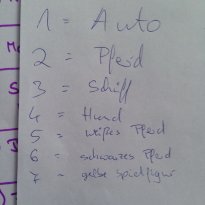 1 = Auto
2 = Pferd
3 = Schiff
4 = Hund
5 = weißes Pferd
6 = schwarzes Pferd
7 = gelbe Spielfigur